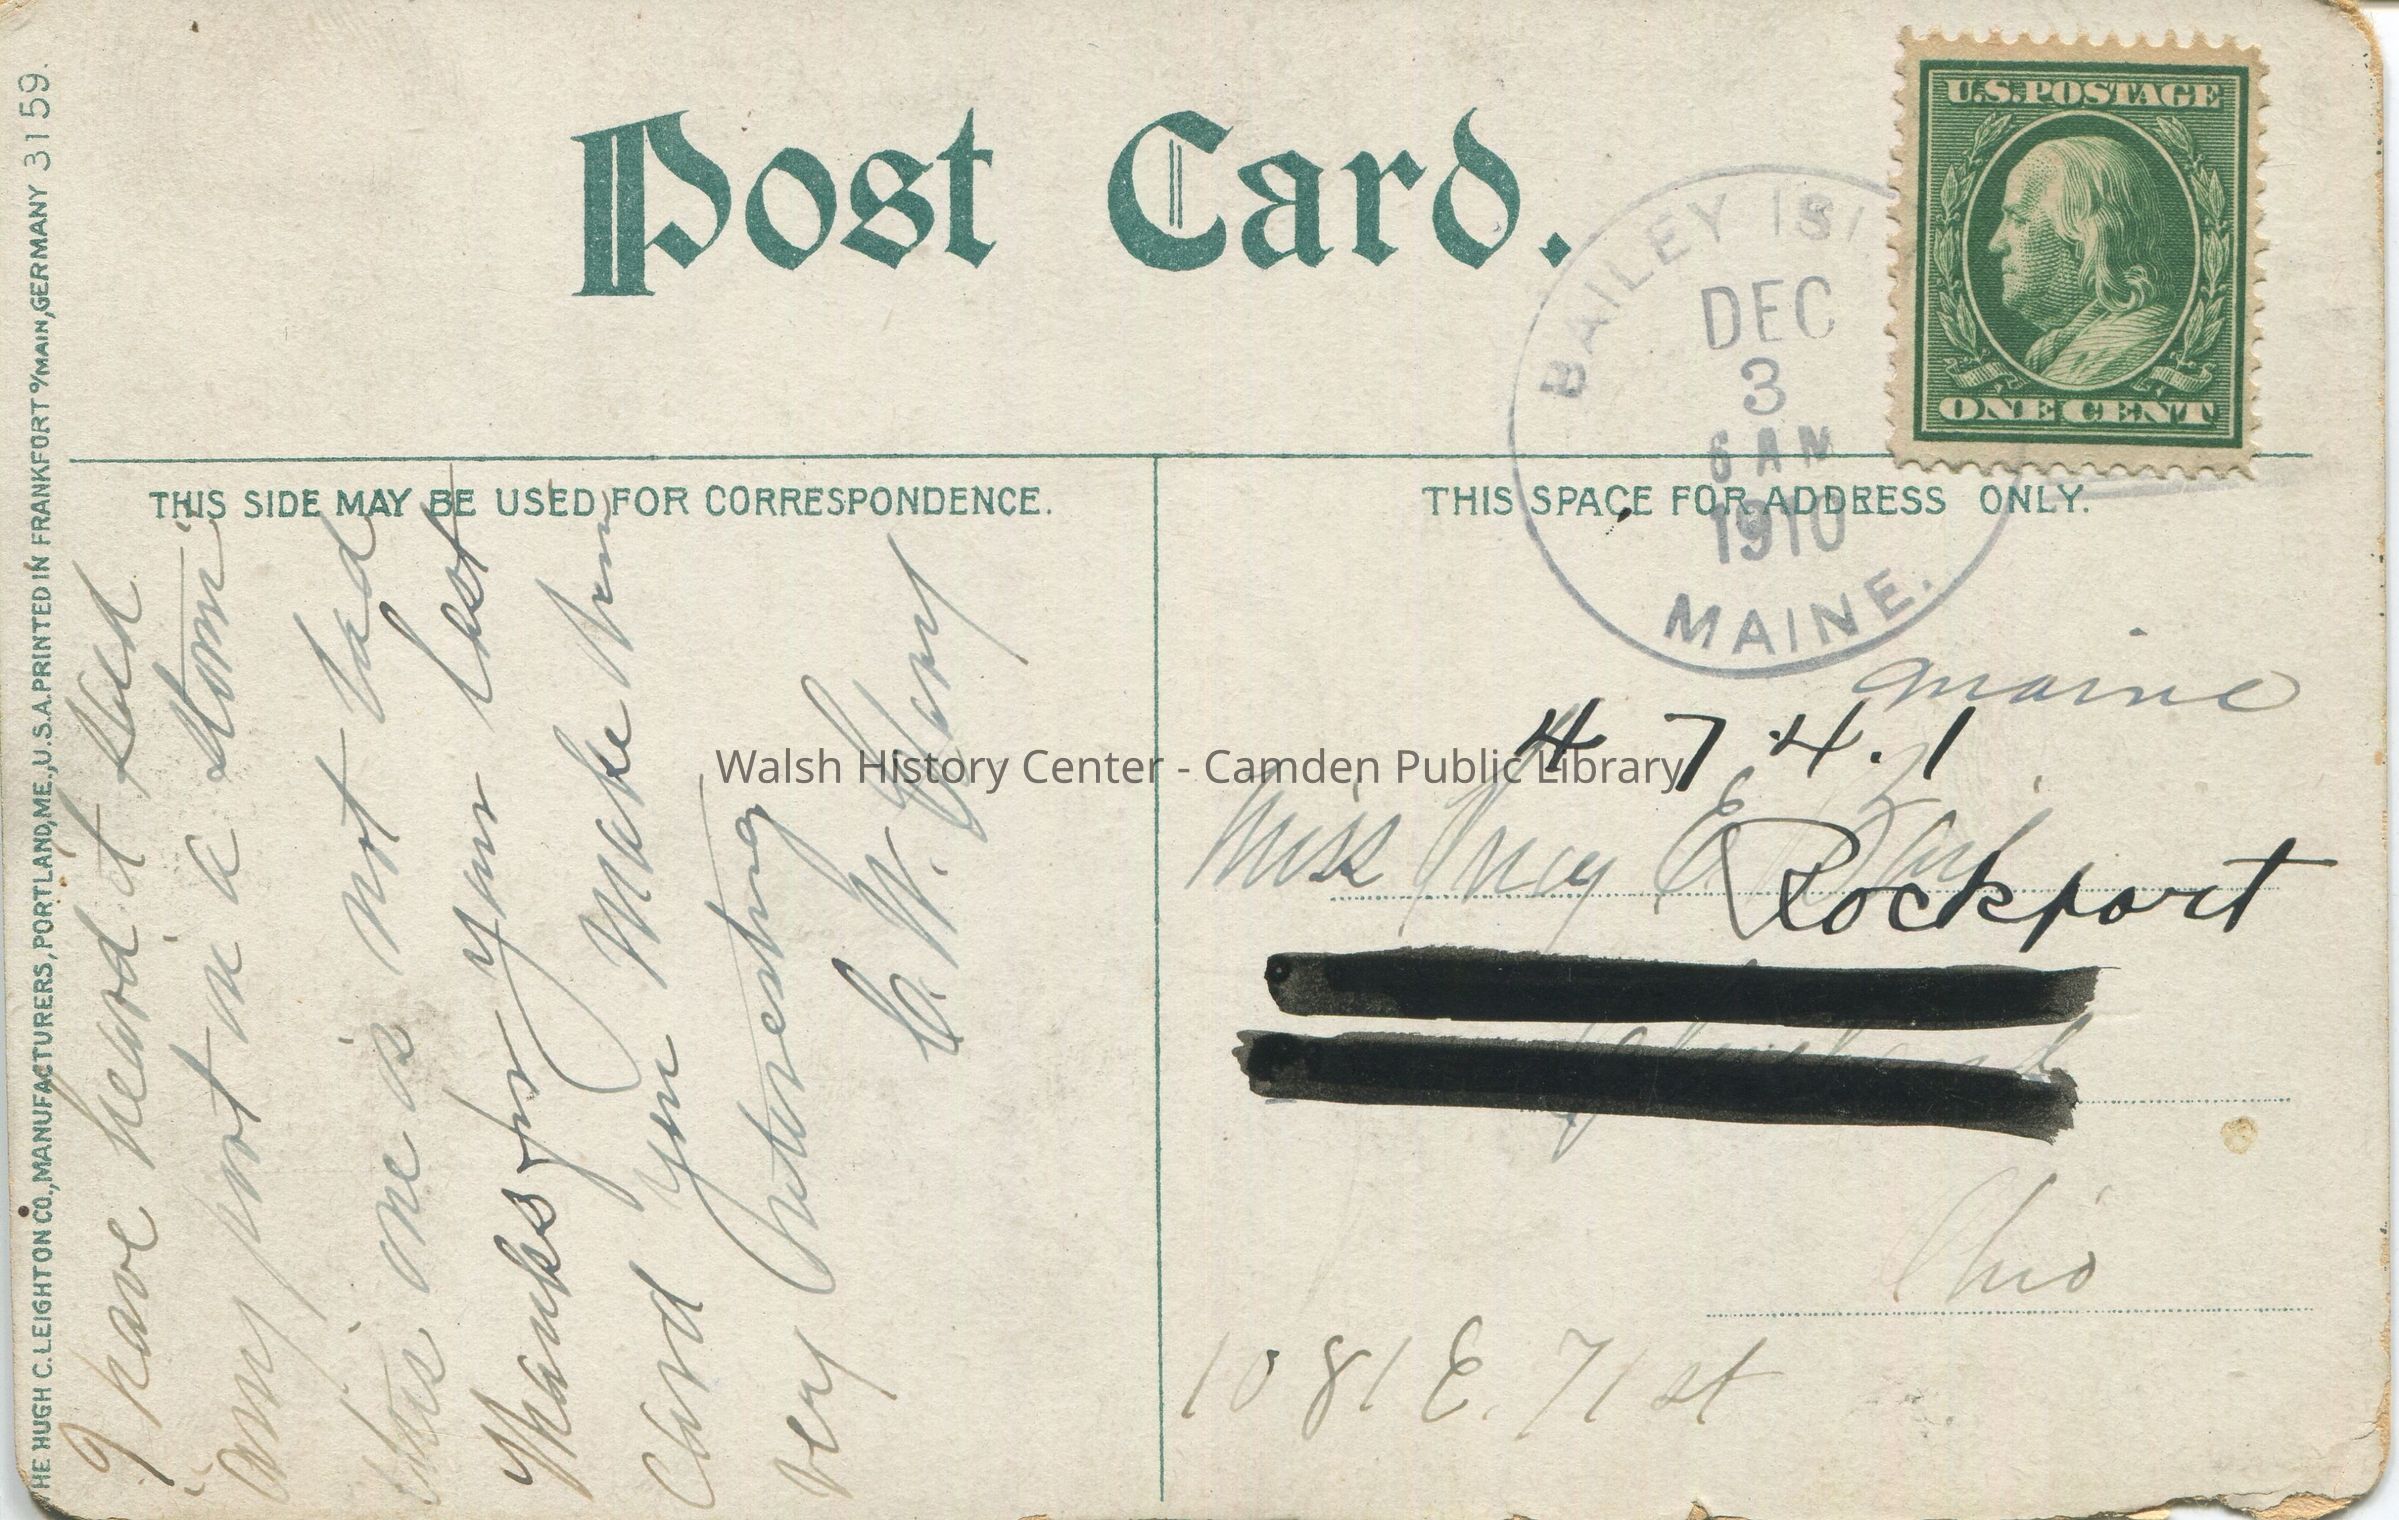 Post Card.
U.S. POSTAGE
ONE CENT
BAILEY ISL
DEC
3
6 AM
1910
MAINE.
THE HUGH C. LEIGHTON CO., MANUFACTURERS, PORTLAND, ME., U.S.A. PRINTED IN FRANKFORT o/MAIN, GERMANY 3159.
THIS SIDE MAY BE USED FOR CORRESPONDENCE.
THIS SPACE FOR ADDRESS ONLY.
I have heard it said
"any port in a storm"
this one is not bad
Thanks for your last
Card you Make them
very Interesting
C. W.
Maine
4 7 4.1
Miss E.
Rockport
Ohio
1081 E. 71 st
Walsh History Center - Camden Public Library